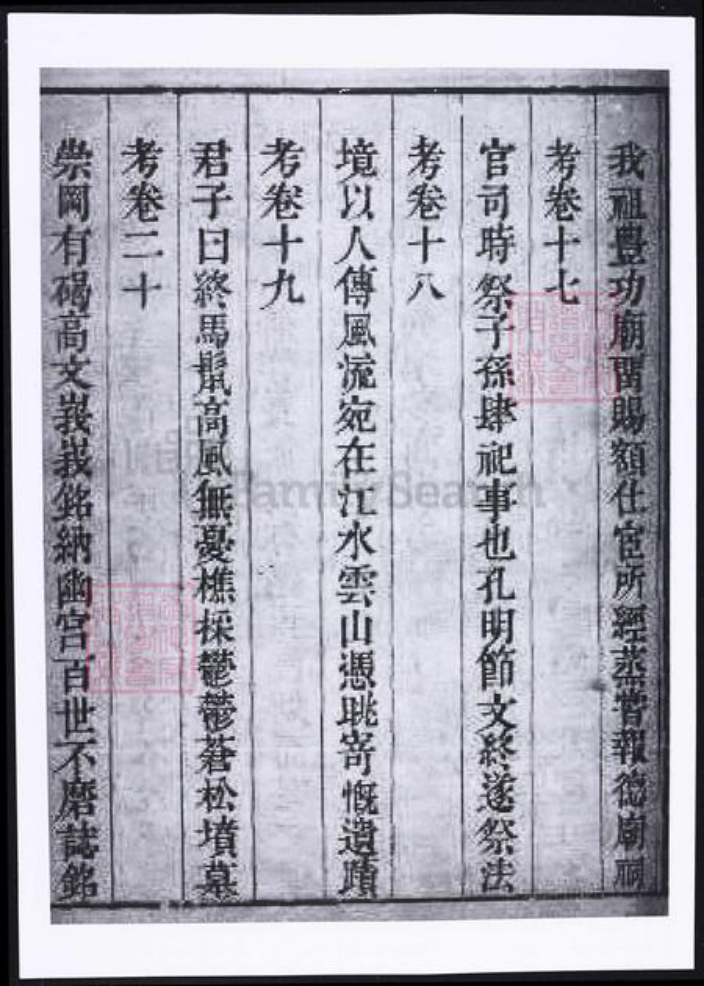 我祖豊功廟留賜額仕宦所經蒸嘗報德廟祠
考卷十七
官司時祭子孫肆祀事也孔明節文終遂祭法
考卷十八
境以人傳風流宛在江水雲山憑眺寄慨遺蹟
考卷十九
君子曰終馬鬛高風無憂樵採鬱鬱蒼松墳墓
考卷二十
崇岡有碣高文峩峩銘納幽宮百世不磨誌銘
FamilySearch